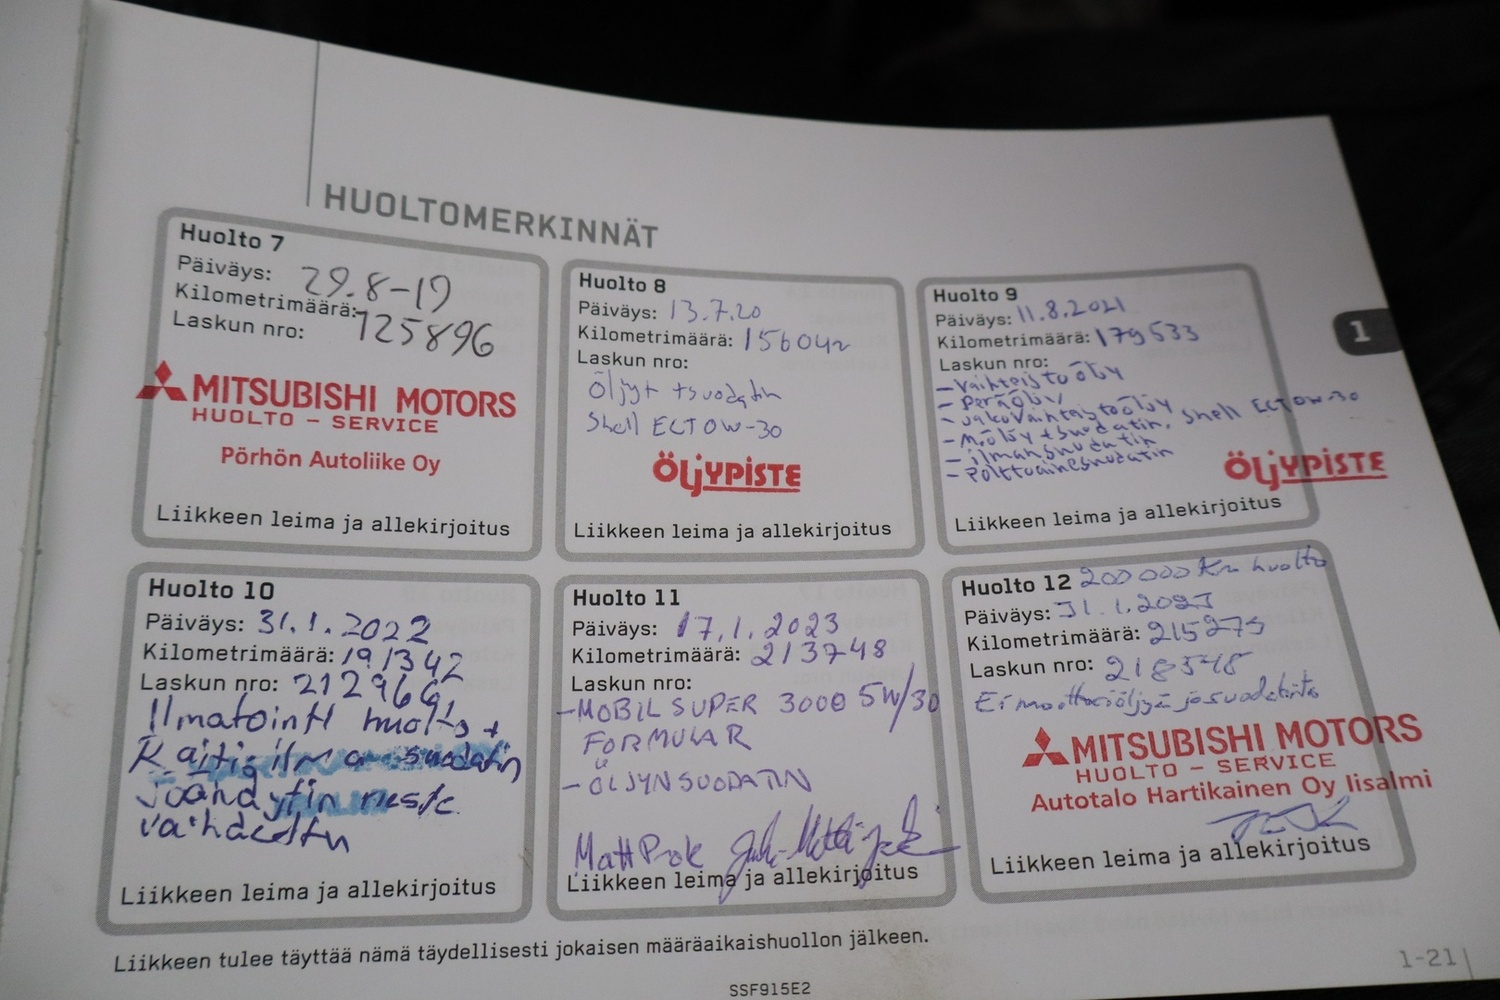 HUOLTOMERKINNÄT
Huolto 7
Päiväys: 29.8-19
Kilometrimäärä: 125896
Laskun nro:
MITSUBISHI MOTORS
HUOLTO - SERVICE
Pörhön Autoliike Oy
Liikkeen leima ja allekirjoitus
Huolto 8
Päiväys: 13.7.20
Kilometrimäärä: 156042
Laskun nro:
Öljyt + suodatin
Shell ECT 0W-30
ÖLJYPISTE
Liikkeen leima ja allekirjoitus
Huolto 9
Päiväys: 11.8.2021
Kilometrimäärä: 179533
Laskun nro:
- Vaihteistoöljy
- Peräöljy
- Jakovaihteistoöljy
- M.öljy + suodatin, Shell ECT 0W-30
- ilmansuodatin
- Polttoainesuodatin
ÖLJYPISTE
Liikkeen leima ja allekirjoitus
Huolto 10
Päiväys: 31.1.2022
Kilometrimäärä: 191342
Laskun nro: 212966
Ilmatointi huolto +
Raitisilmasuodatin
Jäähdytin neste
vaihdettu
Liikkeen leima ja allekirjoitus
Huolto 11
Päiväys: 17.1.2023
Kilometrimäärä: 213748
Laskun nro:
- MOBIL SUPER 3000 5W/30
FORMULAR
- ÖLJYNSUODATIN
Liikkeen leima ja allekirjoitus
Huolto 12 200 000 km huolto
Päiväys: 31.1.2023
Kilometrimäärä: 215275
Laskun nro: 218548
Ei moottoriöljyä ja suodatinta
MITSUBISHI MOTORS
HUOLTO - SERVICE
Autotalo Hartikainen Oy Iisalmi
Liikkeen leima ja allekirjoitus
1
Liikkeen tulee täyttää nämä täydellisesti jokaisen määräaikaishuollon jälkeen.
1-21
SSF915E2